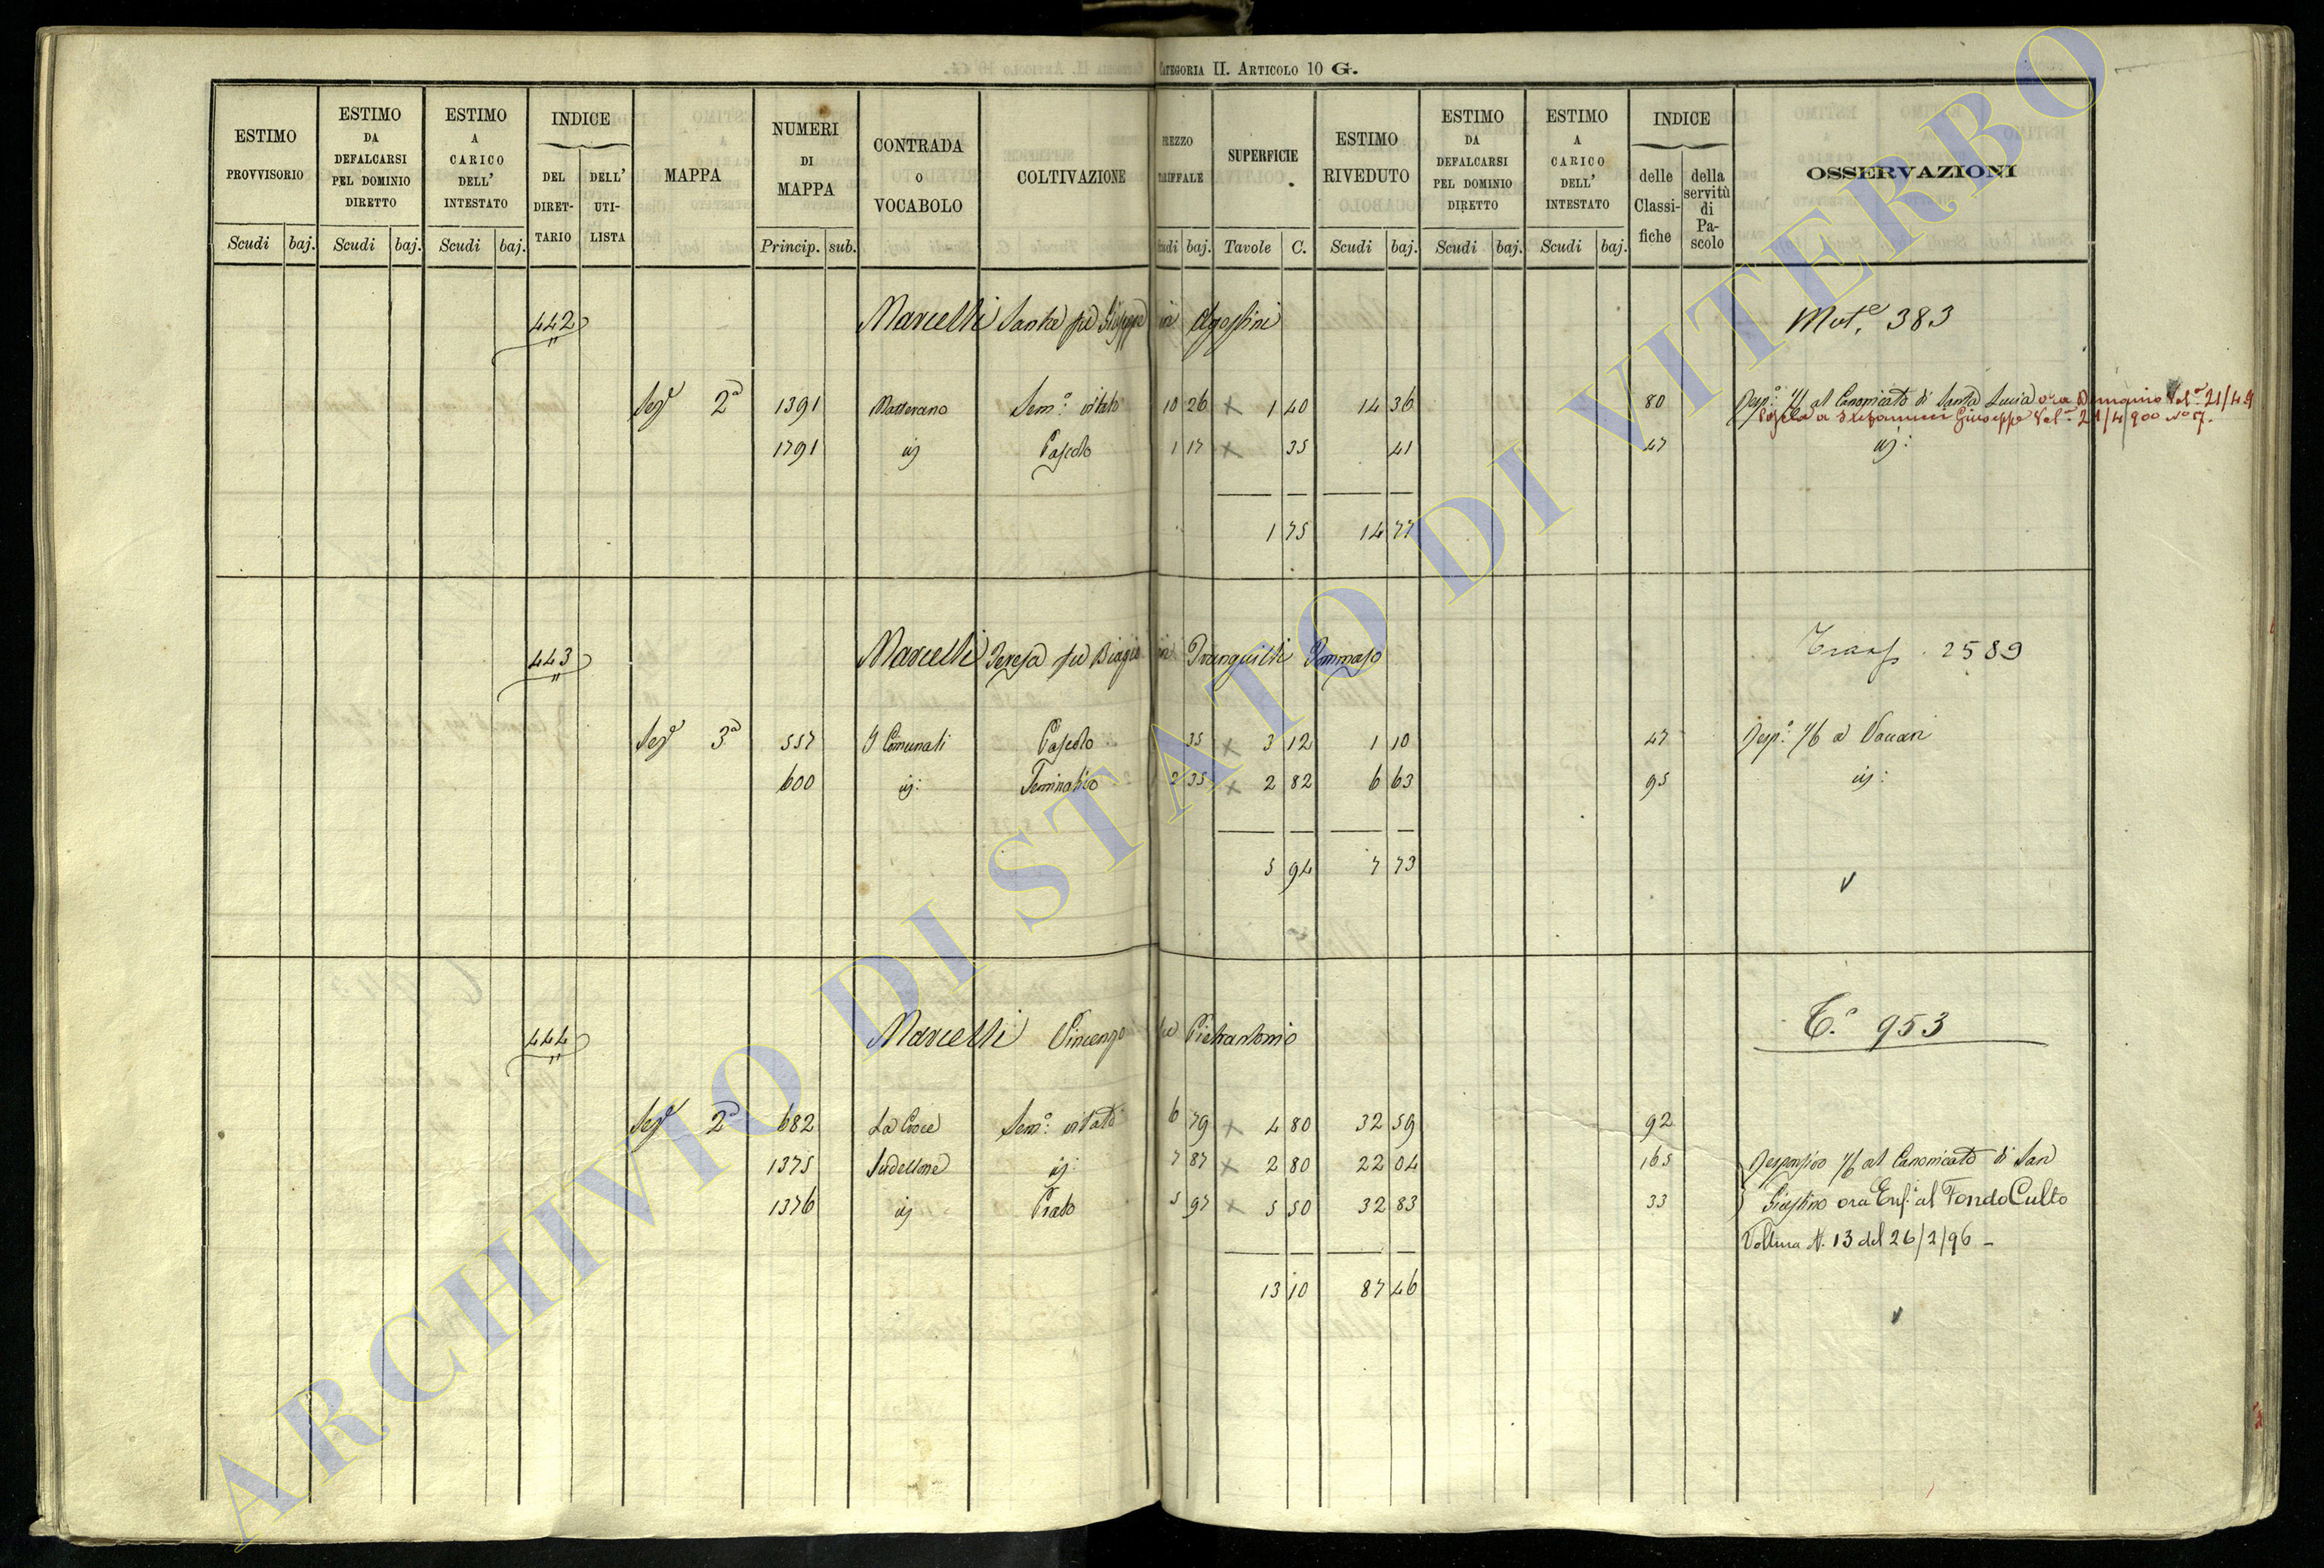 CATEGORIA II. ARTICOLO 10 G.
ESTIMO PROVVISORIO Scudi baj. ESTIMO DA DEFALCARSI PEL DOMINIO DIRETTO Scudi baj. ESTIMO A CARICO DELL' INTESTATO Scudi baj. INDICE DEL DIRET- TARIO DELL' UTI- LISTA MAPPA NUMERI DI MAPPA Princip. sub. CONTRADA O VOCABOLO COLTIVAZIONE
REZZO ARIFFALE udi baj. SUPERFICIE Tavole C. ESTIMO RIVEDUTO Scudi baj. ESTIMO DA DEFALCARSI PEL DOMINIO DIRETTO Scudi baj. ESTIMO A CARICO DELL' INTESTATO Scudi baj. INDICE delle Classi- fiche della servitù di Pa- scolo OSSERVAZIONI
442 Marcelli Santa fu Giuseppe in Agostini Mut.e 383
Sez.e 2a 1391 Matterano Sem.o vitato 10 26 x 1 40 14 36 80 Resp.o 1/6 al Canonicato di Santa Lucia ora Demanio Vol.a 21/49
a Giuseppe Vol.a 21/4/900 No 7.
1791 id Pascolo 1 17 x 35 41 47 id:
1 75 14 77
443 Marcelli Teresa fu Biagio in Tranquilli Tommaso Trasp. 2589
Sez.e 3a 557 I Comunali Pascolo 35 x 3 12 1 10 47 Resp.o 1/6 a Vaccari
600 id: Seminativo 2 35 x 2 82 6 63 95 id:
5 94 7 73
444 Marcelli Vincenzo fu Pietrantonio T.o 953
Sez.e 2a 682 La Croce Sem.o vitato 6 79 x 4 80 32 59 92
1375 Sudellone id: 7 87 x 2 80 22 04 165 Responsivo 1/6 al Canonicato di San
1376 id Prato 5 97 x 5 50 32 83 33 Giustino ora Enf. al Fondo Culto
Voltura N. 13 del 26/2/96 -
13 10 87 46
ARCHIVIO DI STATO DI VITERBO